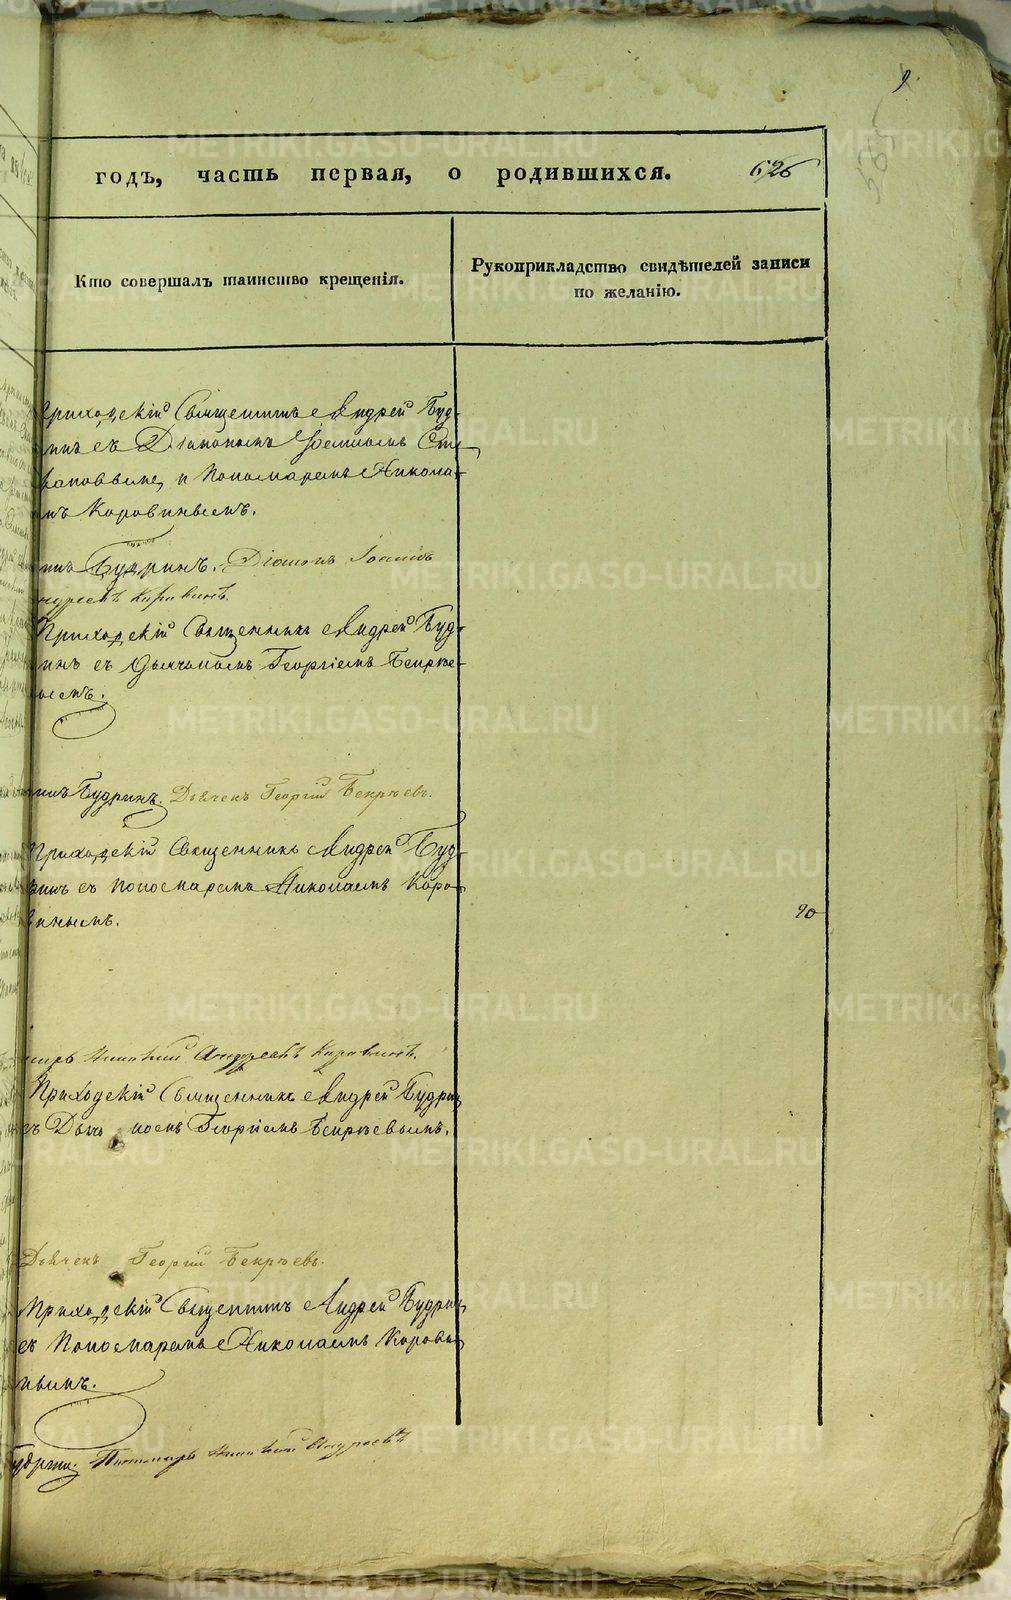 9.
годъ, часть первая, о родившихся. 626
Кто совершалъ таинство крещенія.
Рукоприкладство свидѣтелей записи
по желанію.
Приходскій Священникъ Андрей Буд-
инъ съ Діакономъ Іоанномъ Сте
вановымъ, и Пономаремъ Никола-
мъ Коровинымъ.
Будринъ. Діаконъ Іоаннъ
Андреевъ Коровинъ.
Приходскій Священникъ Андрей Буд-
инъ съ Дьячкомъ Георгіемъ Бекрѣе-
вымъ.
Будринъ. Дьячекъ Георгій Бекрѣевъ.
Приходскій Священникъ Андрей Буд-
ринъ съ пономаремъ Николаемъ Коро-
винымъ.
90
Андреевъ Коровинъ.
Приходскій Священникъ Андрей Будрин
съ Дьяч комъ Георгіемъ Бекрѣевымъ.
Дьячекъ Георгій Бекрѣевъ.
Приходскій Священникъ Андрей Будрин
съ Пономаремъ Николаемъ Корови
нымъ.
Будринъ. Пономарь Николай Андреевъ
METRIKI.GASO-URAL.RU